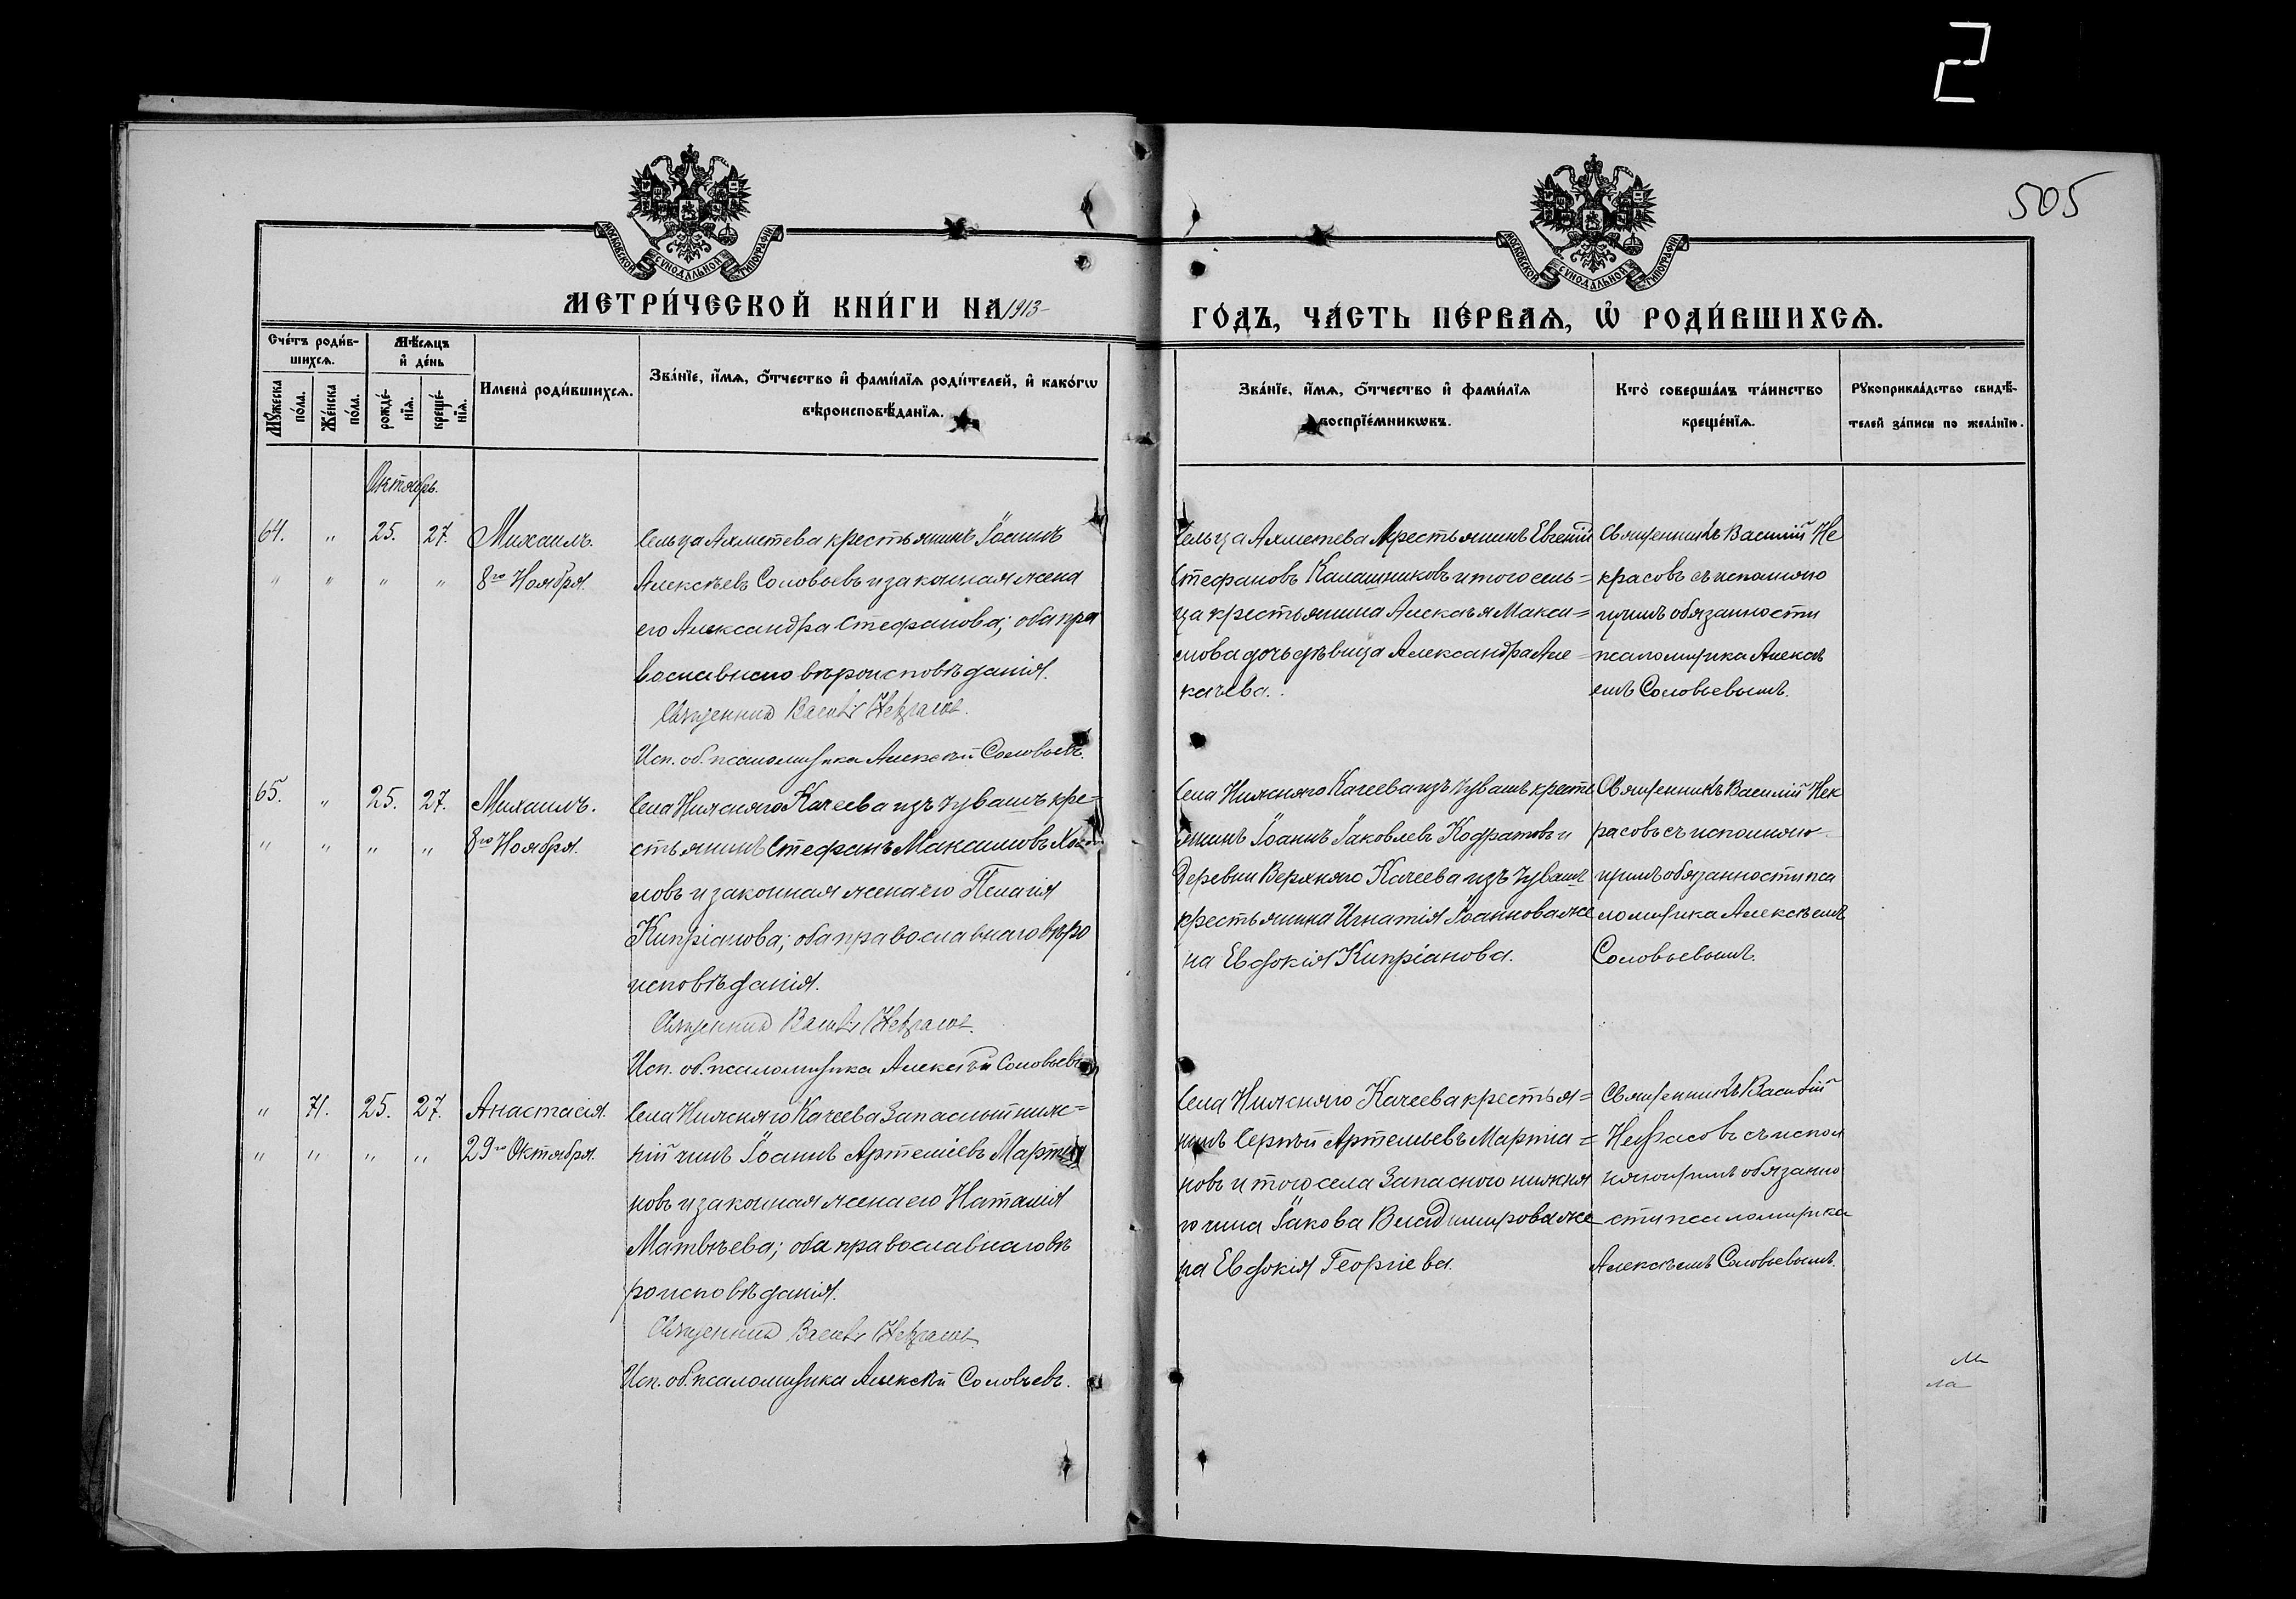 2
505
МОСКОВСКОЙ СѴНОДАЛЬНОЙ ТИПОГРАФІИ
МОСКОВСКОЙ СѴНОДАЛЬНОЙ ТИПОГРАФІИ
МЕТРИ́ЧЕСКОЙ КНИ́ГИ НА 1913
ГО́ДЪ, ЧА́СТЬ ПЕ́РВАѦ, Ѽ РОДИ́ВШИХСѦ.
Сче́тъ роди́в-
шихсѧ.
Мꙋ́жеска
по́ла.
Же́нска
по́ла.
Мѣ́сѧцъ
и҆ де́нь
рожде́-
нїѧ.
креще́-
нїѧ.
Имена̀ роди́вшихсѧ.
Зва́нїе, и҆́мѧ, ѻ҆́тчество и҆ фами́лїѧ роди́телей, и҆ како́гѡ
вѣроисповѣ́данїѧ.
Зва́нїе, и҆́мѧ, ѻ҆́тчество и҆ фами́лїѧ
воспрїе́мникѡвъ.
Кто̀ соверша́лъ та́инство
креще́нїѧ.
Рꙋкоприкла́дство свидѣ́-
телей за́писи по жела́нїю.
Октябрь.
64. " 25. 27. Михаилъ.
" " " " 8го Ноября.
Сельца Ахметева крестьянинъ Іоаннъ
Алексѣевъ Соловьевъ и законная жена
его Александра Стефанова; оба пра
вославнаго вѣроисповѣданія.
Священникъ Василій Некрасовъ.
Исп. об. псаломщика Алексѣй Соловьевъ.
Сельца Ахметева крестьянинъ Евгеній
Стефановъ Калашниковъ и того сель=
ца крестьянина Алексѣя Макси=
мова дочь дѣвица Александра Але=
ксѣева.
Священникъ Василій Не
красовъ съ исполняю
щимъ обязанности
псаломщика Алексѣ
емъ Соловьевымъ.
65. " 25. 27. Михаилъ.
" " " " 8го Ноября.
Села Нижняго Качеева изъ чувашъ кре=
стьянинъ Стефанъ Максимовъ
ловъ и законная жена его Пелагія
Кипріанова; оба православнаго вѣро
исповѣданія.
Священникъ Василій Некрасовъ.
Исп. об. псаломщика Алексѣй Соловьевъ
Села Нижняго Качеева изъ чувашъ кресть
янинъ Іоаннъ Іаковлевъ Кодратовъ и
деревни Верхняго Качеева изъ чувашъ
крестьянина Игнатія Іоаннова же
на Евдокія Кипріанова.
Священникъ Василій Нек
расовъ съ исполняю
щимъ обязанности пса
ломщика Алексѣемъ
Соловьевымъ.
" 71. 25. 27. Анастасія.
" " " " 29го Октября.
Села Нижняго Качеева Запасный ниж=
ній чинъ Іоаннъ Артеміевъ Мартья
новъ и законная жена его Наталія
Матвѣева; оба православнаго вѣ
роисповѣданія.
Священникъ Василій Некрасовъ
Исп. об. псаломщика Алексѣй Соловьевъ.
Села Нижняго Качеева крестья=
нинъ Сергѣй Артемьевъ Мартья=
новъ и того села Запасного нижня
го чина Іакова Владимирова же
на Евдокія Георгіева.
Священникъ Василій
Некрасовъ съ испол
няющимъ обязанно
сти псаломщика
Алексѣемъ Соловьевымъ.